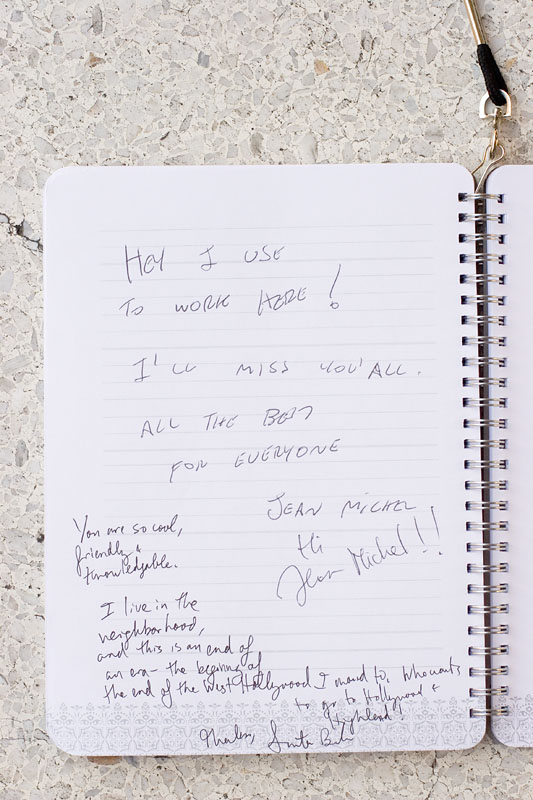 HEY I USE
TO WORK HERE!
I'LL MISS YOU'ALL.
ALL THE BEST
FOR EVERYONE
JEAN MICHEL
Hi
Jean Michel!!
You are so cool,
friendly &
knowledgable.
I live in the
neighborhood,
and this is an end of
an era - the beginning of
the end of the West Hollywood I moved to. Who wants
to go to Hollywood &
Highland?
Thanks,